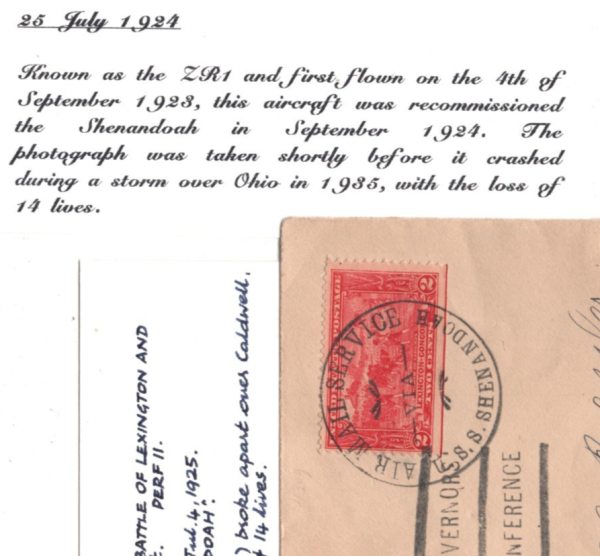 25 July 1924
Known as the ZR1 and first flown on the 4th of
September 1923, this aircraft was recommissioned
the Shenandoah in September 1924. The
photograph was taken shortly before it crashed
during a storm over Ohio in 1935, with the loss of
14 lives.
BATTLE OF LEXINGTON AND
PERF 11.
Jul. 4, 1925.
DOAH".
) broke apart over Caldwell.
14 lives.
POSTAGE
2 2
LEXINGTON-CONCORD
TWO CENTS
AIR MAIL SERVICE
ABOARD
VIA
U.S.S. SHENANDOAH
VERNORS
NFERENCE